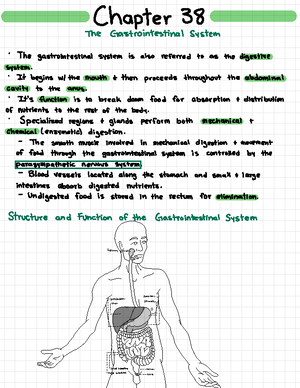 Chapter 38
The Gastrointestinal System
· The gastrointestinal system is also referred to as the digestive
system.
· It begins w/ the mouth & then proceeds throughout the abdominal
cavity to the anus.
· It's function is to break down food for absorption & distribution
of nutrients to the rest of the body.
· Specialized regions & glands perform both mechanical &
chemical (enzymatic) digestion.
- The smooth muscle involved in mechanical digestion & movement
of food through the gastrointestinal system is controlled by the
parasympathetic nervous system
- Blood vessels located along the stomach and small & large
intestines absorb digested nutrients.
- Undigested food is stored in the rectum for elimination.
Structure and Function of the Gastrointestinal System